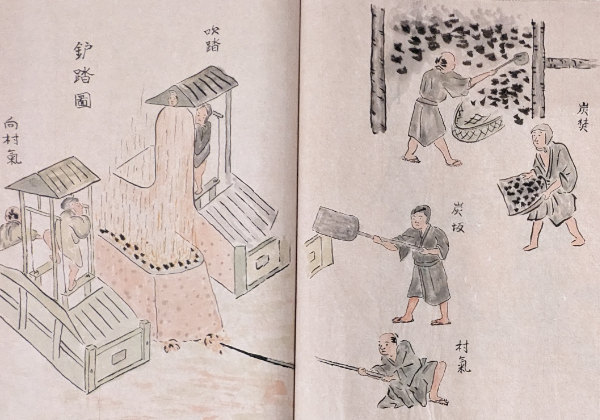 炭焚
炭坂
村氣
吹踏
鈩踏圖
向村氣